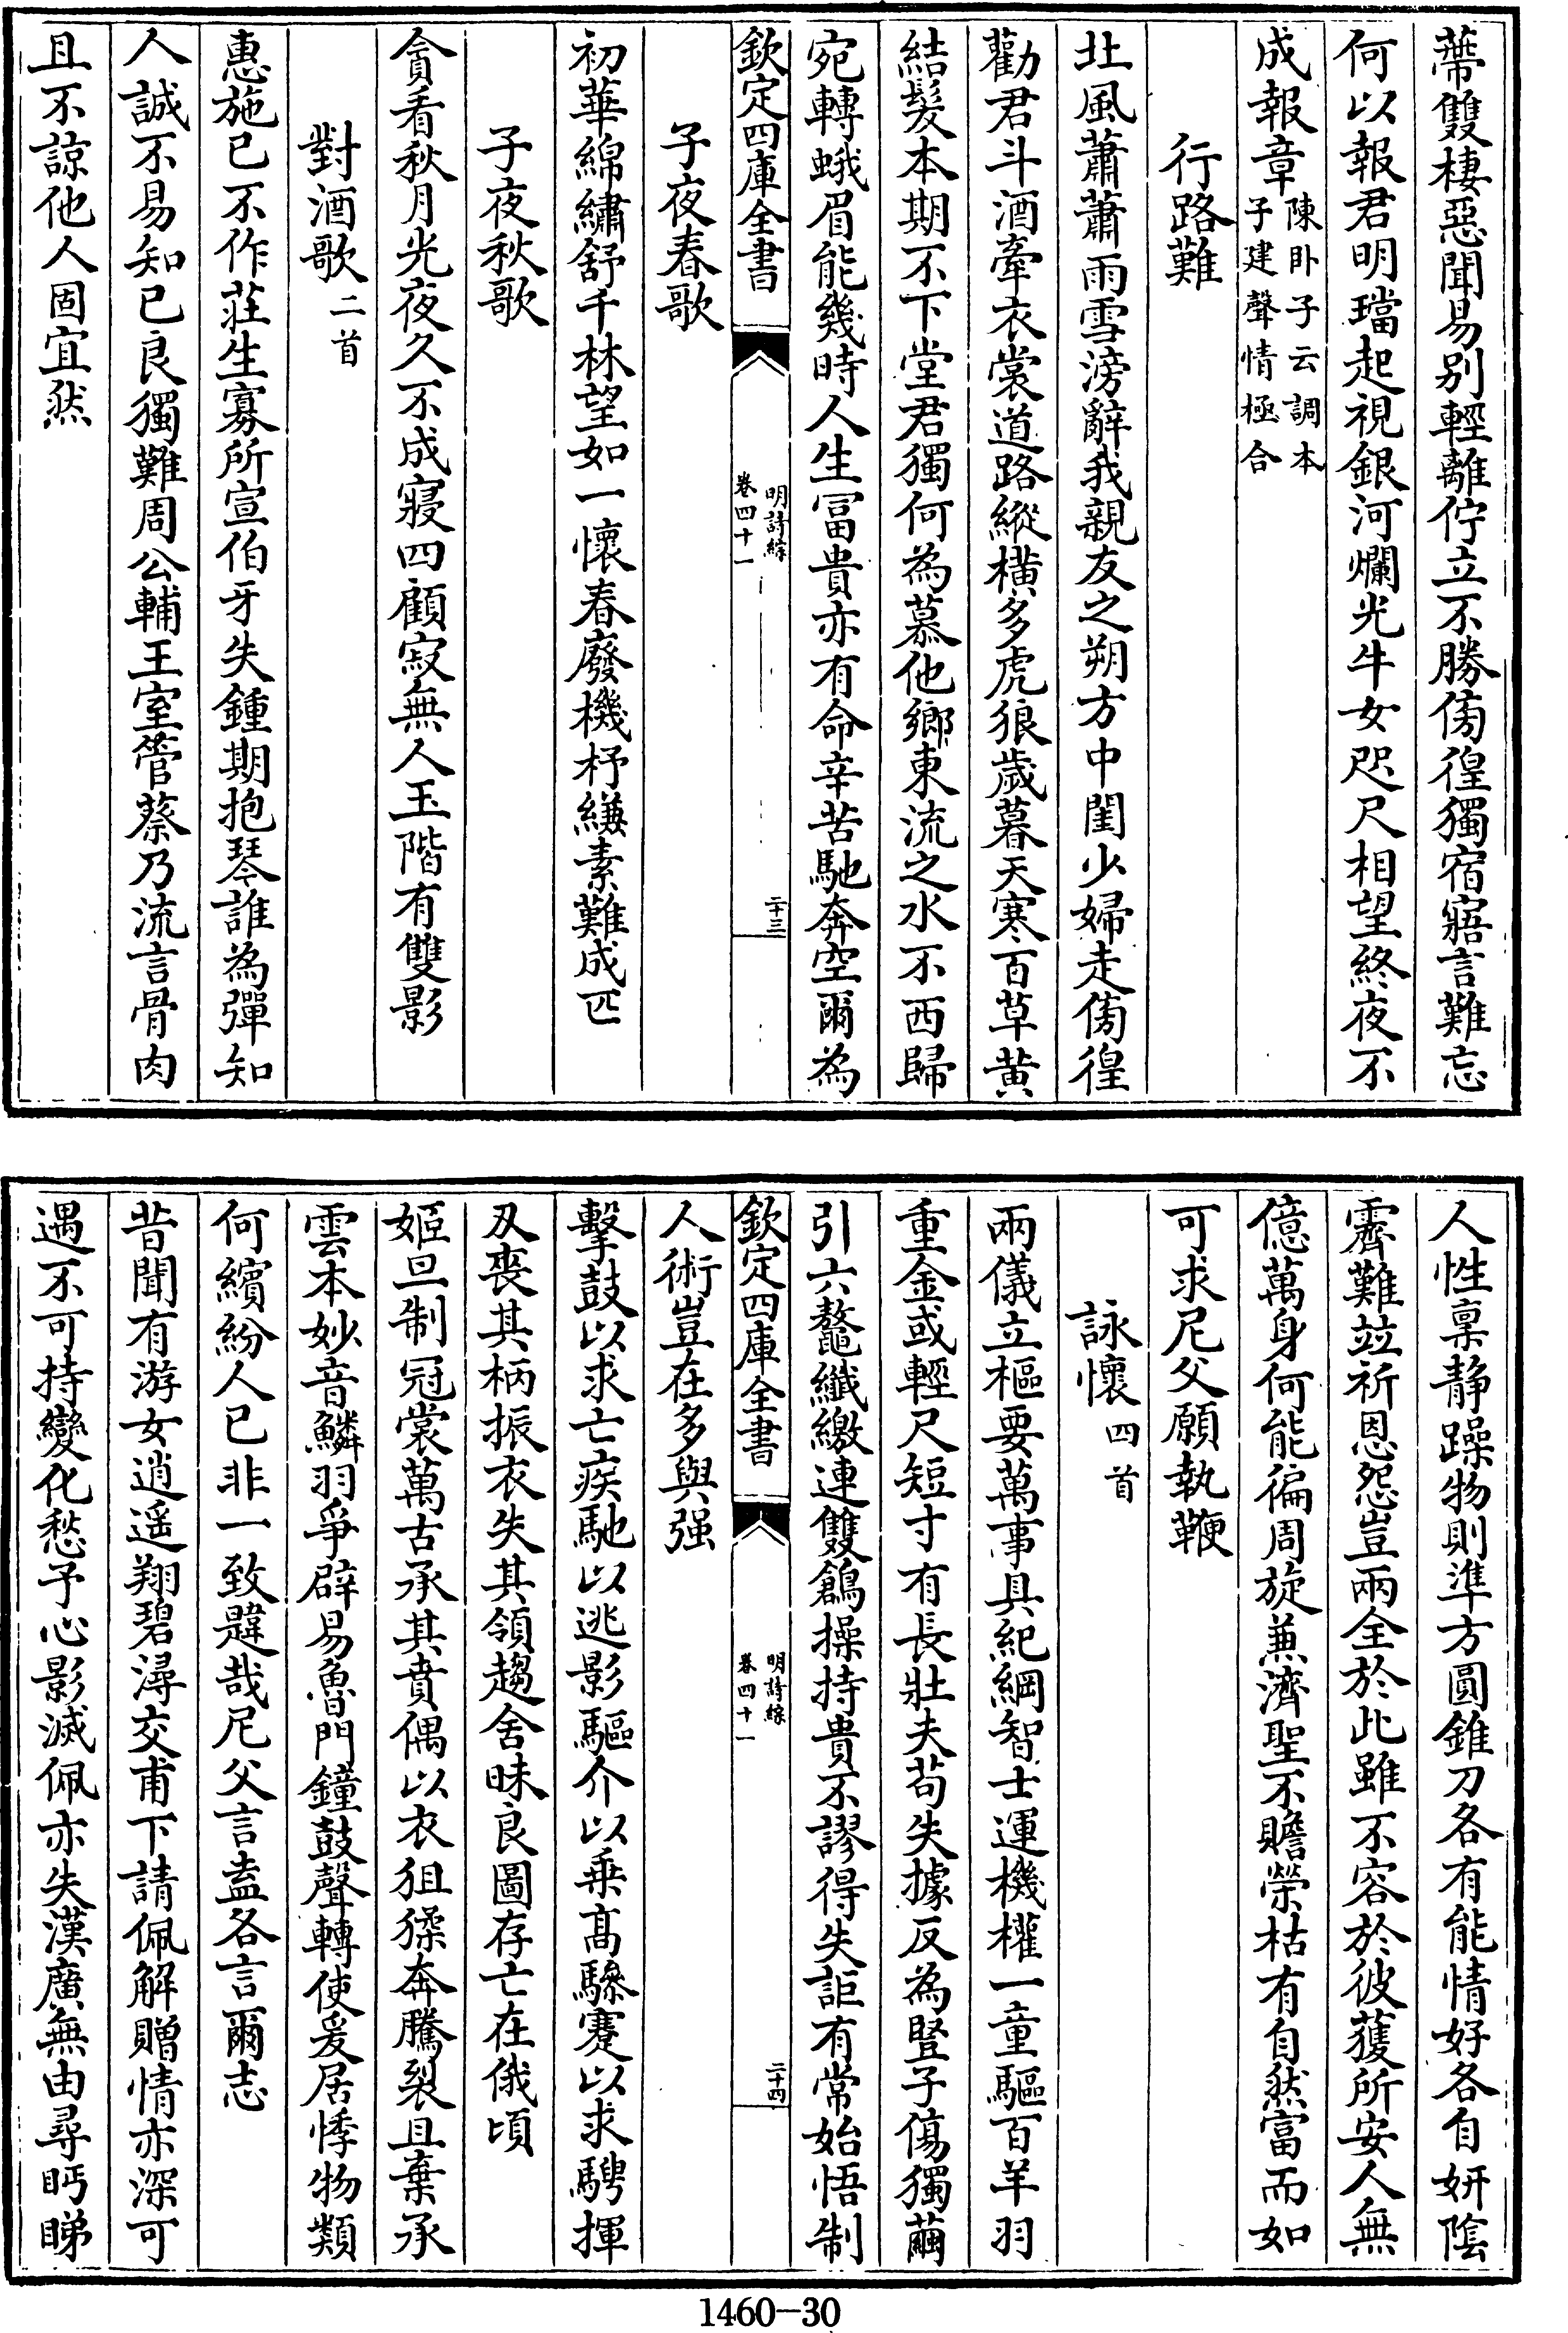 蔕雙棲惡聞易别輕離佇立不勝傍徨獨宿寤言難忘
何以報君明璫起視銀河爛光牛女咫尺相望終夜不
成報章陳卧子云調本
子建聲情極合
行路難
北風蕭蕭雨雪滂辭我親友之朔方中閨少婦走傍徨
勸君斗酒牽衣裳道路縱横多虎狼歲暮天寒百草黄
結髮本期不下堂君獨何為慕他鄉東流之水不西歸
宛轉蛾眉能幾時人生冨貴亦有命辛苦馳奔空爾為
欽定四庫全書
明詩綜
卷四十一
二十三
子夜春歌
初華綿繡舒千林望如一懷春廢機杼縑素難成匹
子夜秋歌
貪看秋月光夜久不成寢四顧寂無人玉階有雙影
對酒歌二首
惠施已不作莊生寡所宣伯牙失鍾期抱琴誰為彈知
人誠不易知已良獨難周公輔王室管蔡乃流言骨肉
且不諒他人固宜然
人性稟静躁物則準方圓錐刀各有能情好各自妍陰
霽難竝祈恩怨豈兩全於此雖不容於彼獲所安人無
億萬身何能徧周旋兼濟聖不贍榮枯有自然富而如
可求尼父願執鞭
詠懷四首
兩儀立樞要萬事具紀綱智士運機權一童驅百羊羽
重金或輕尺短寸有長壯夫苟失據反為豎子傷獨繭
引六鼇纖繳連雙鶬操持貴不謬得失詎有常始悟制
欽定四庫全書
明詩綜
卷四十一
二十四
人術豈在多與强
擊鼓以求亡疾馳以逃影驅介以乗髙驂蹇以求騁揮
刄喪其柄振衣失其領趨舍昧良圖存亡在俄頃
姬旦制冠裳萬古承其賁偶以衣狙猱奔騰裂且棄承
雲本妙音鱗羽爭辟易魯門鐘鼓聲轉使爰居悸物類
何繽紛人已非一致韙哉尼父言盍各言爾志
昔聞有游女逍遥翔碧潯交甫下請佩解贈情亦深可
遇不可持變化愁予心影滅佩亦失漢廣無由尋眄睇
1460-30